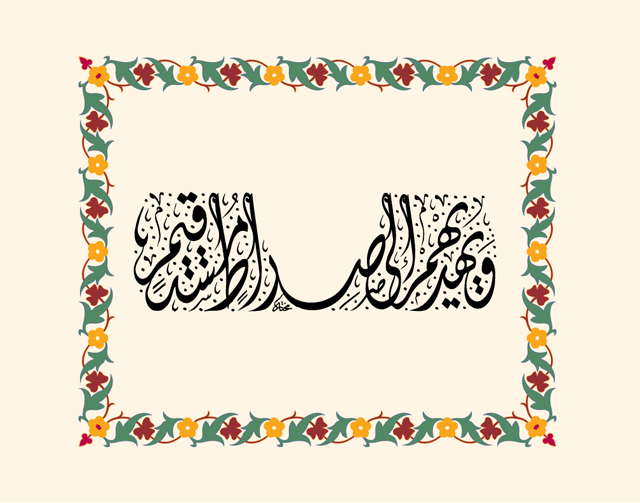 ويهديهم إلى صراط مستقيم